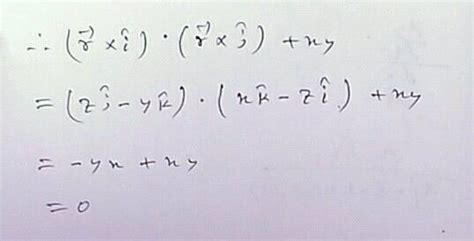 ∴ (r⃗ × î) · (r⃗ × ĵ) + xy
= (zĵ − yk̂) · (xk̂ − zî) + xy
= −yx + xy
= 0